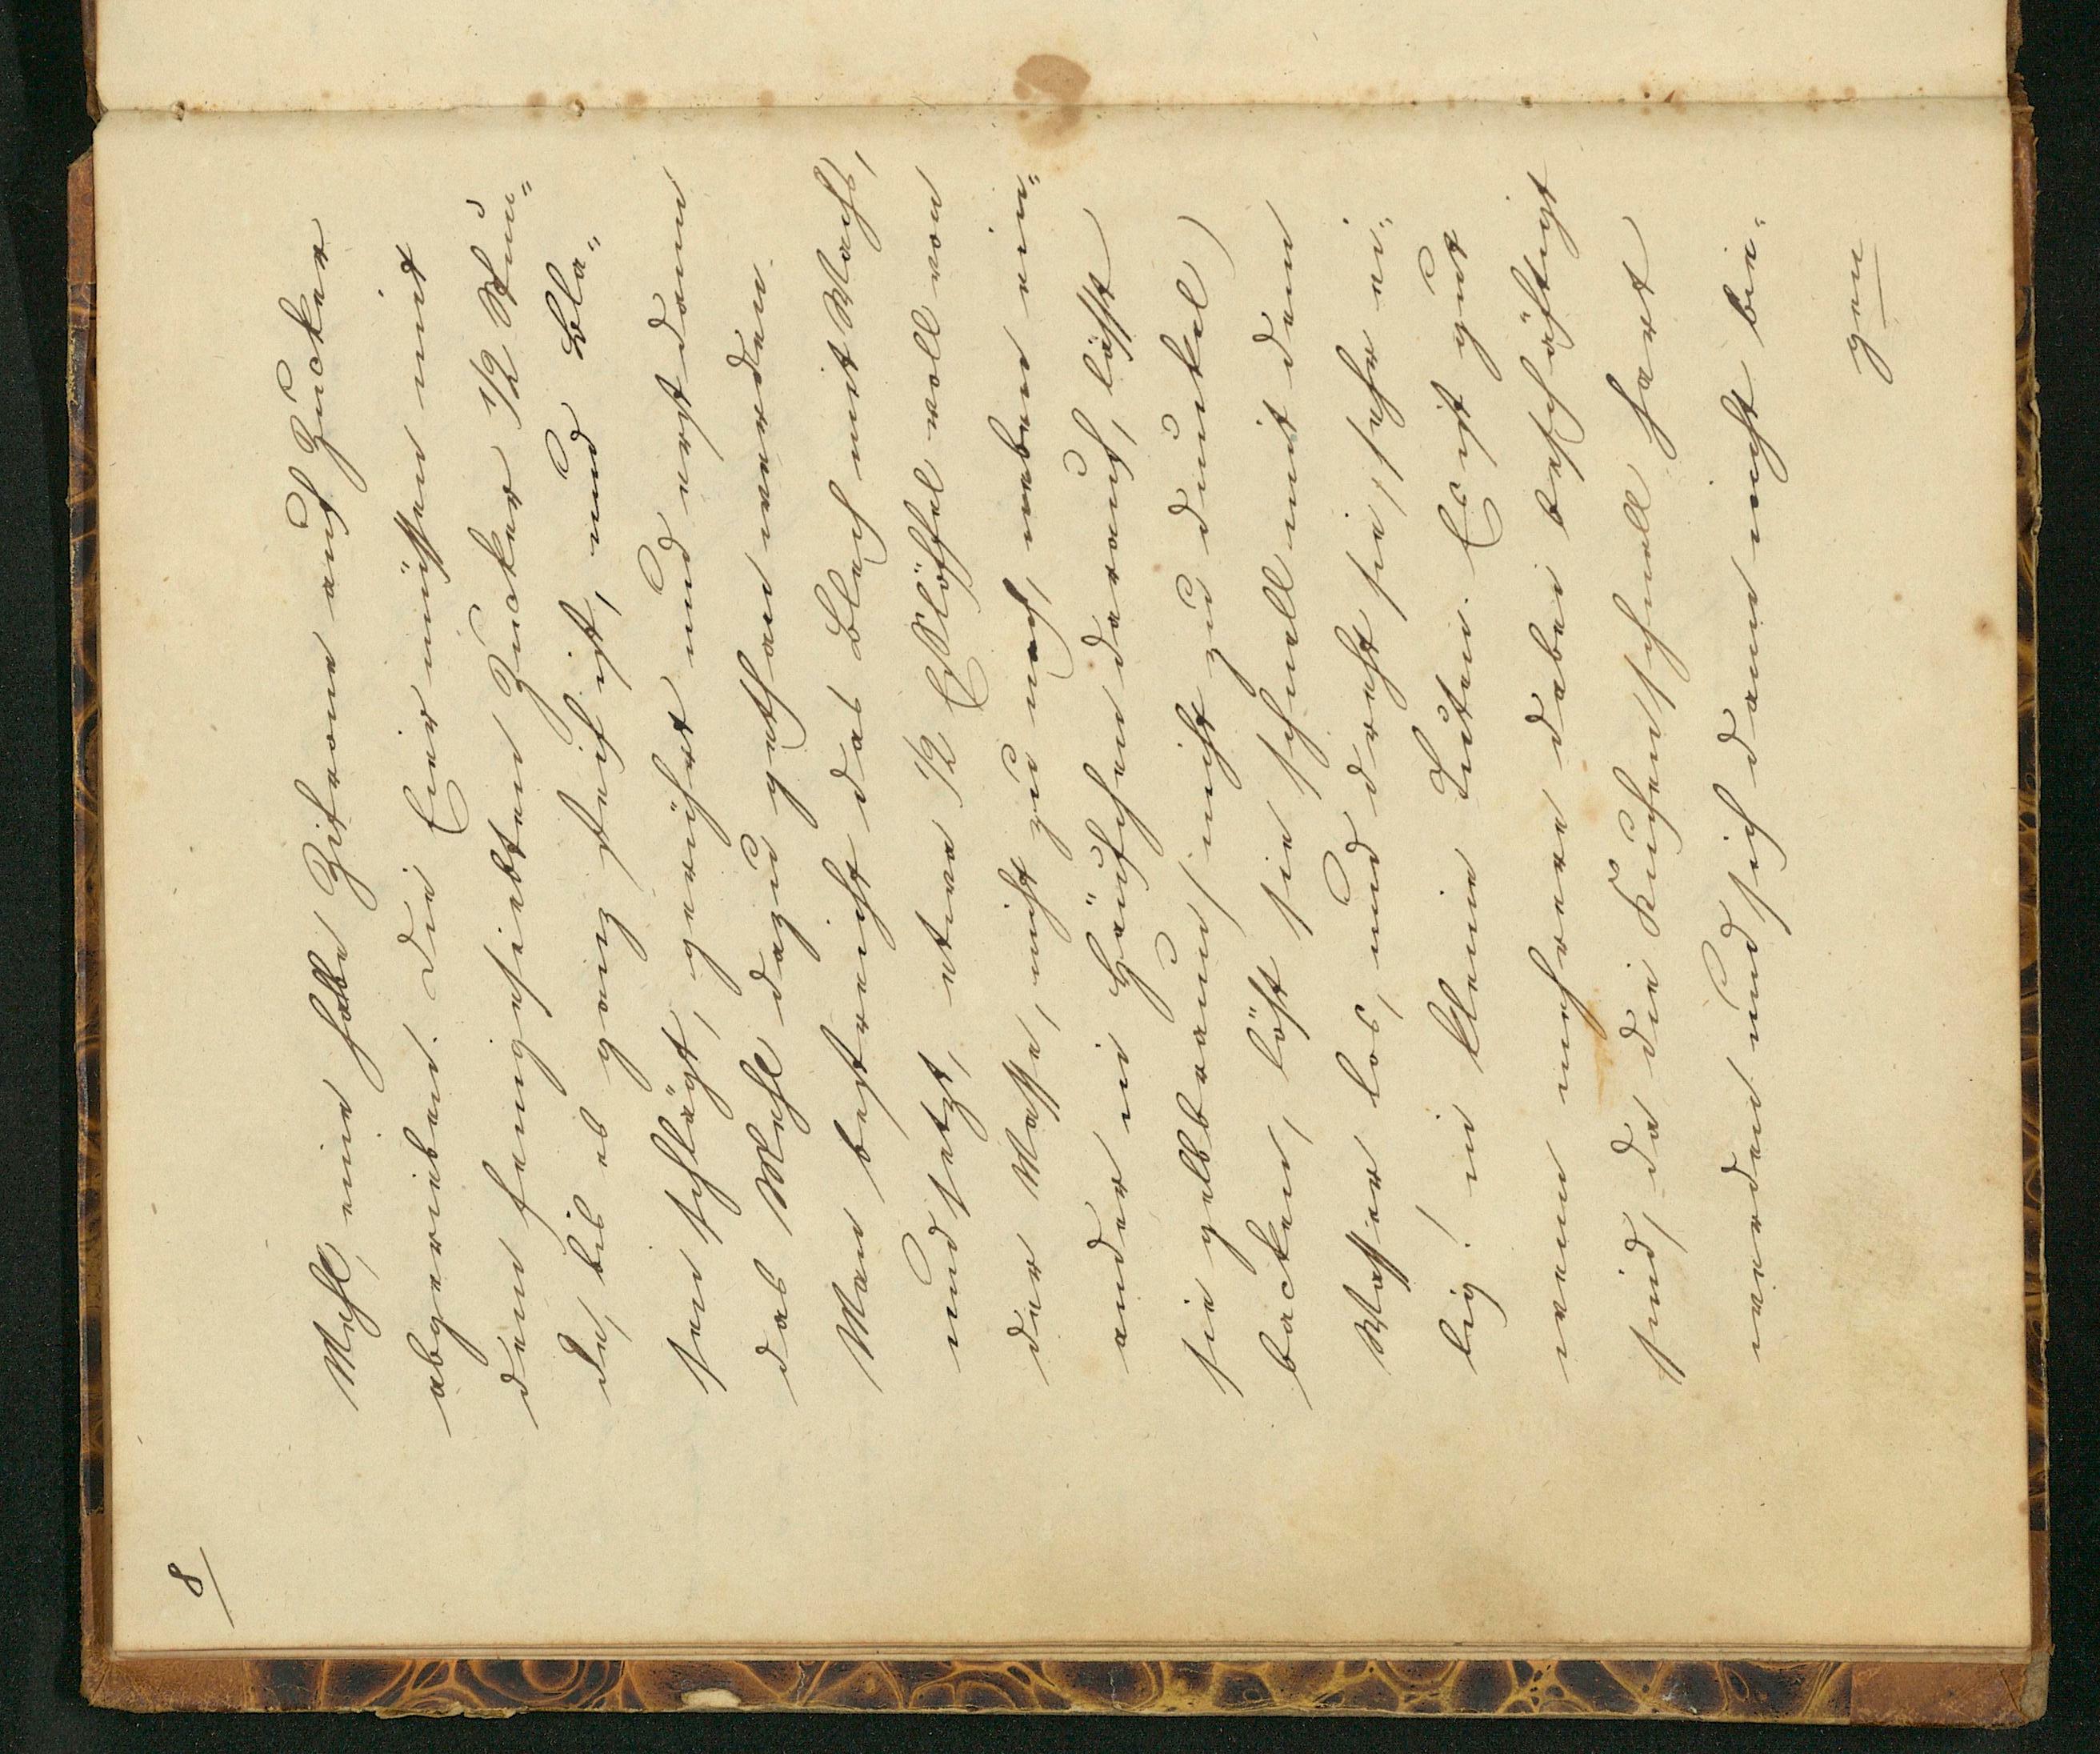 8
Mehl, eine halbe Zitrone auf Zucker
abgerieben. Die Eier müssen mit
dem feingesiebten Zucker 1/2 Stun=
de, bis es ganz steif ist, und Bla=
sen schlägt, gerührt und erst dann
das Mehl dazu gethan werden.
Man bestreicht das Blech mit Wachs,
und setzt, etwa 1/2 Eßlöffel voll von
der Masse, nicht zu nah, neben ein=
ander in Häufchen darauf, läßt
sie gelbbraun (nicht zu dunkel)
backen, löst sie schnell mit dem
Messer los, und dreht sie, (sehr ei=
lig!) in kleine Tuten. Es ist gut
wenn mehrere dabei beschäftigt
sind, da die Kuchen schnell hart
werden und sich dann nicht bie=
gen